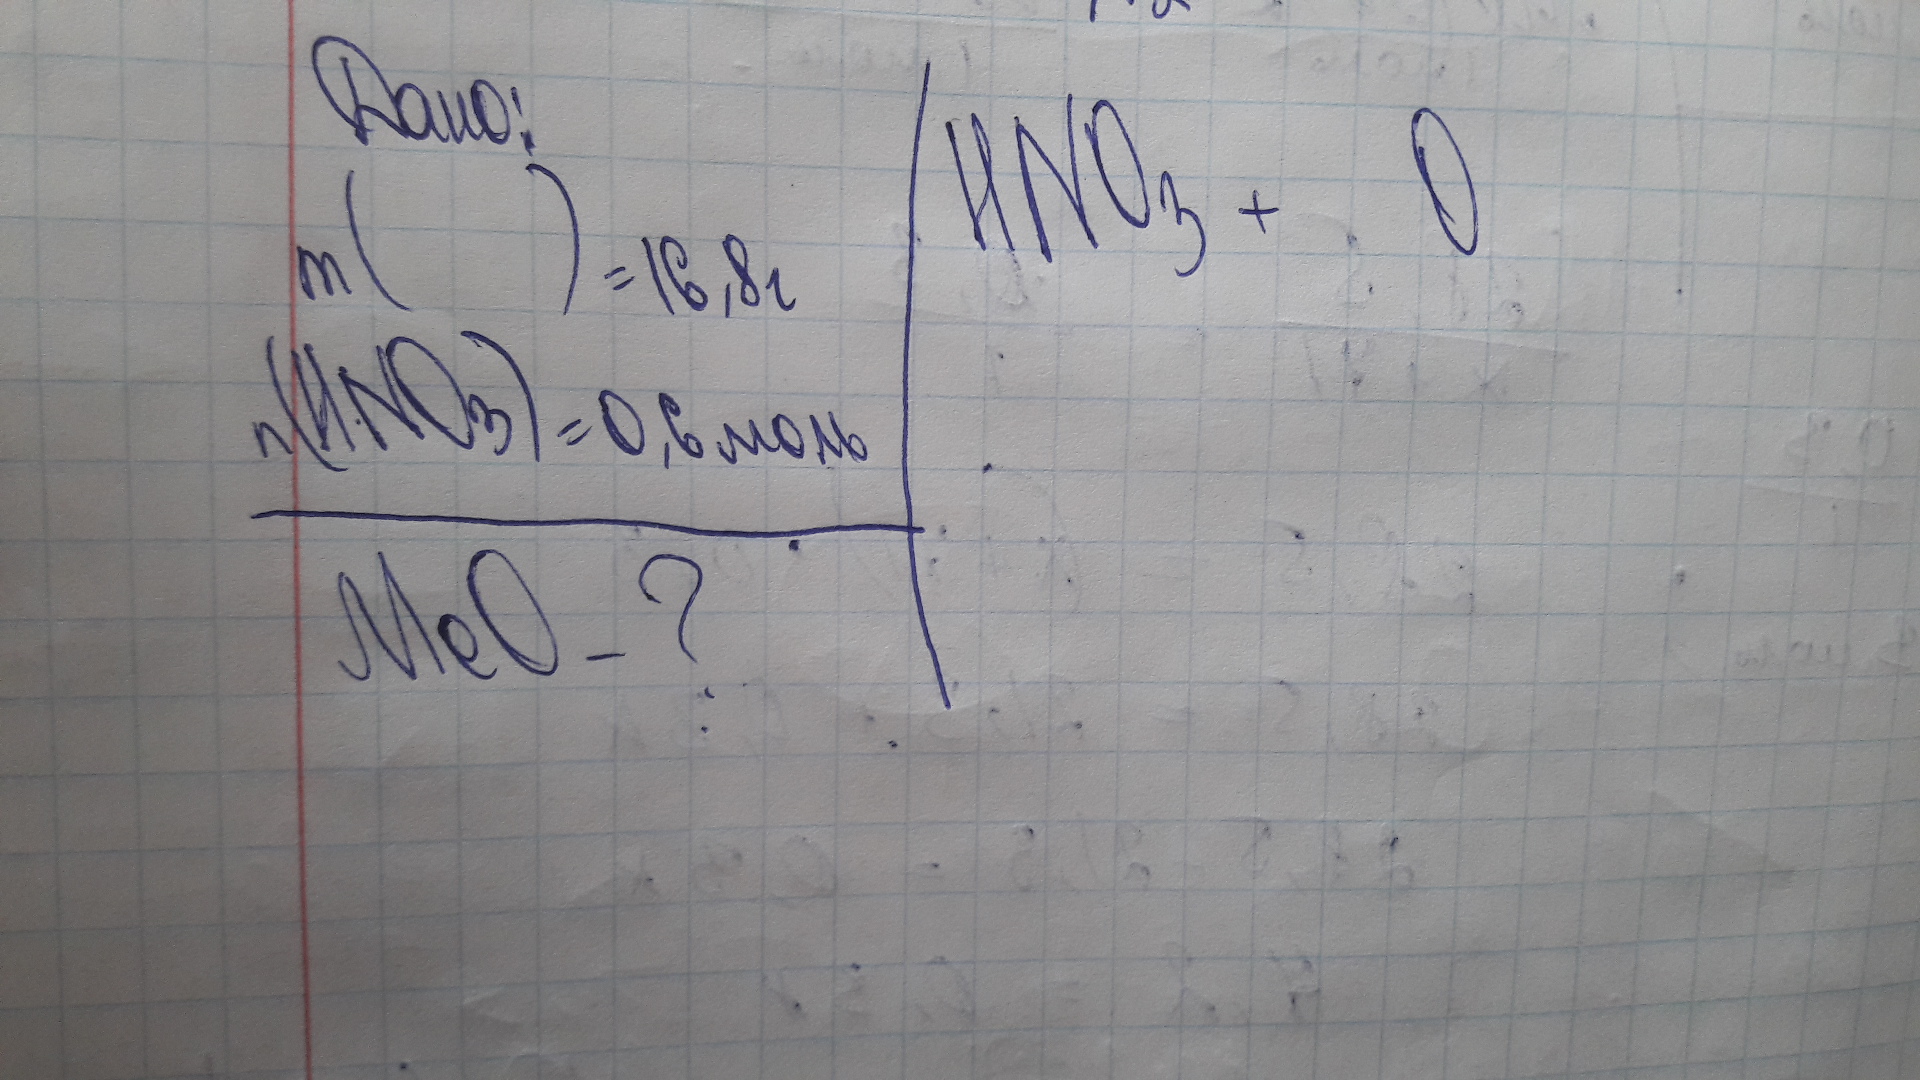 Дано:
m(   ) = 16,8г
n(HNO3) = 0,6 моль
MeO - ?
HNO3 +   O